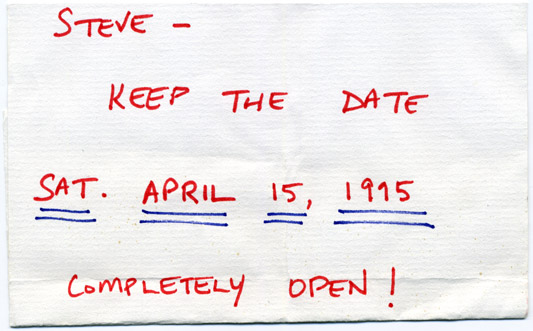 STEVE –
KEEP THE DATE
SAT. APRIL 15, 1995
COMPLETELY OPEN!